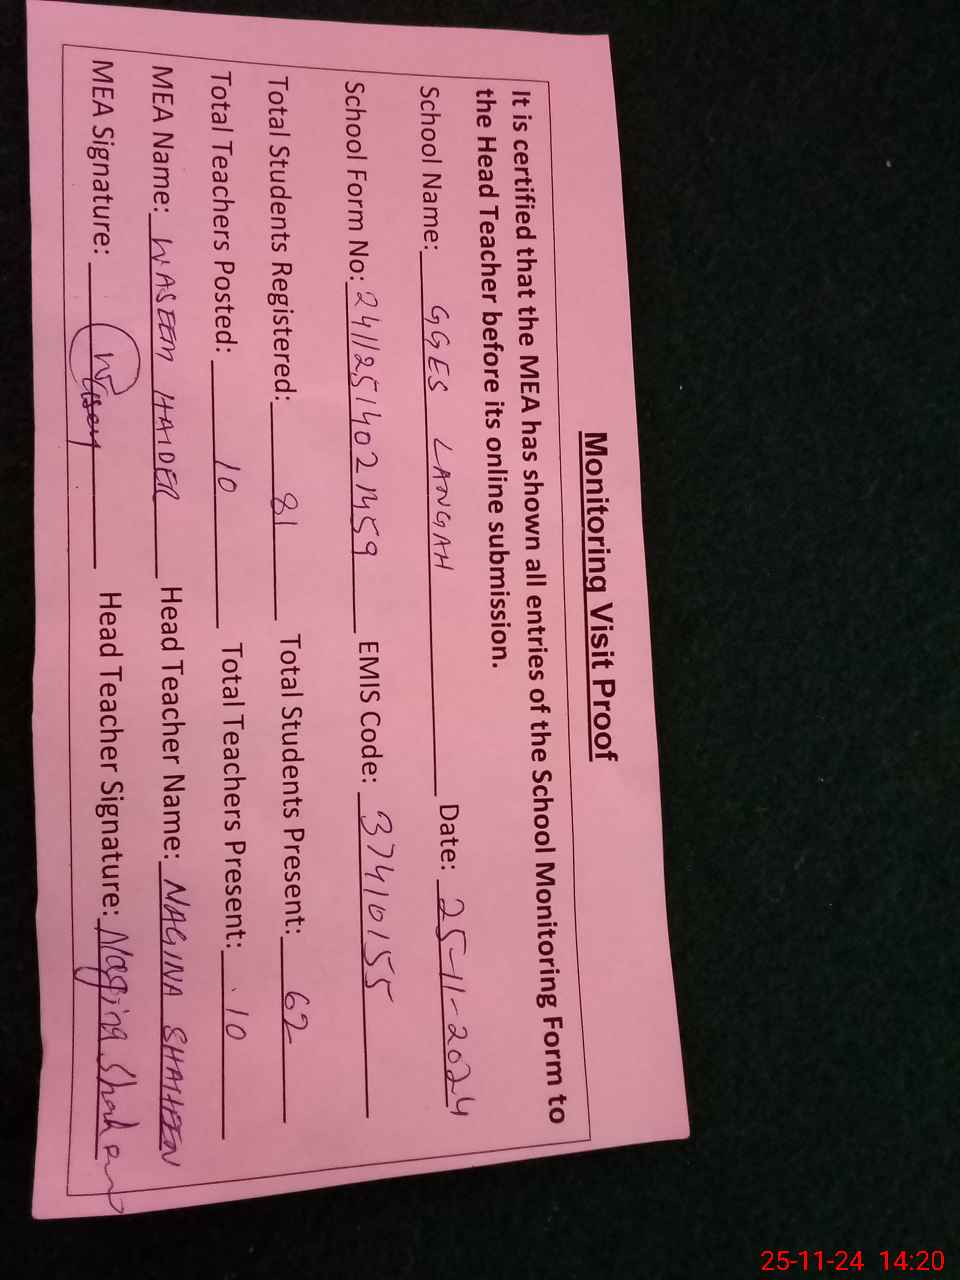 Monitoring Visit Proof
It is certified that the MEA has shown all entries of the School Monitoring Form to
the Head Teacher before its online submission.
School Name: GGES LANGAH Date: 25-11-2024
School Form No: 24112514021459 EMIS Code: 37410155
Total Students Registered: 81 Total Students Present: 62
Total Teachers Posted: 10 Total Teachers Present: 10
MEA Name: WASEEM HAIDER Head Teacher Name: NAGINA SHAHEEN
MEA Signature: Head Teacher Signature: Nagina Shaheen
25-11-24 14:20